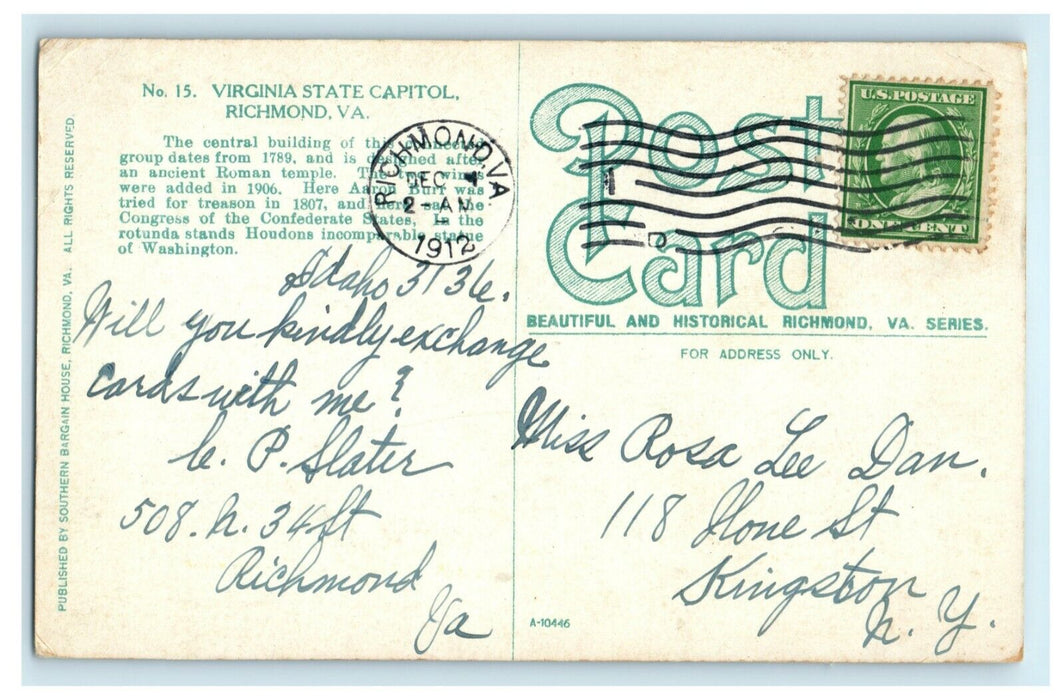 No. 15. VIRGINIA STATE CAPITOL,
RICHMOND, VA.
The central building of this connected
group dates from 1789, and is designed after
an ancient Roman temple. The two wings
were added in 1906. Here Aaron Burr was
tried for treason in 1807, and here sat the
Congress of the Confederate States. In the
rotunda stands Houdons incomparable statue
of Washington.
Idaho 3136.
Will you kindly exchange
cards with me?
C. P. Slater
508. N. 34 St
Richmond
Va
PUBLISHED BY SOUTHERN BARGAIN HOUSE, RICHMOND, VA. ALL RIGHTS RESERVED.
RICHMOND, VA
DEC 4
2-AM
1912
Post
Card
1
D
U.S. POSTAGE
ONE CENT
BEAUTIFUL AND HISTORICAL RICHMOND, VA. SERIES.
FOR ADDRESS ONLY.
Miss Rosa Lee Dan.
118 Hone St
Kingston
N. Y.
A-10446